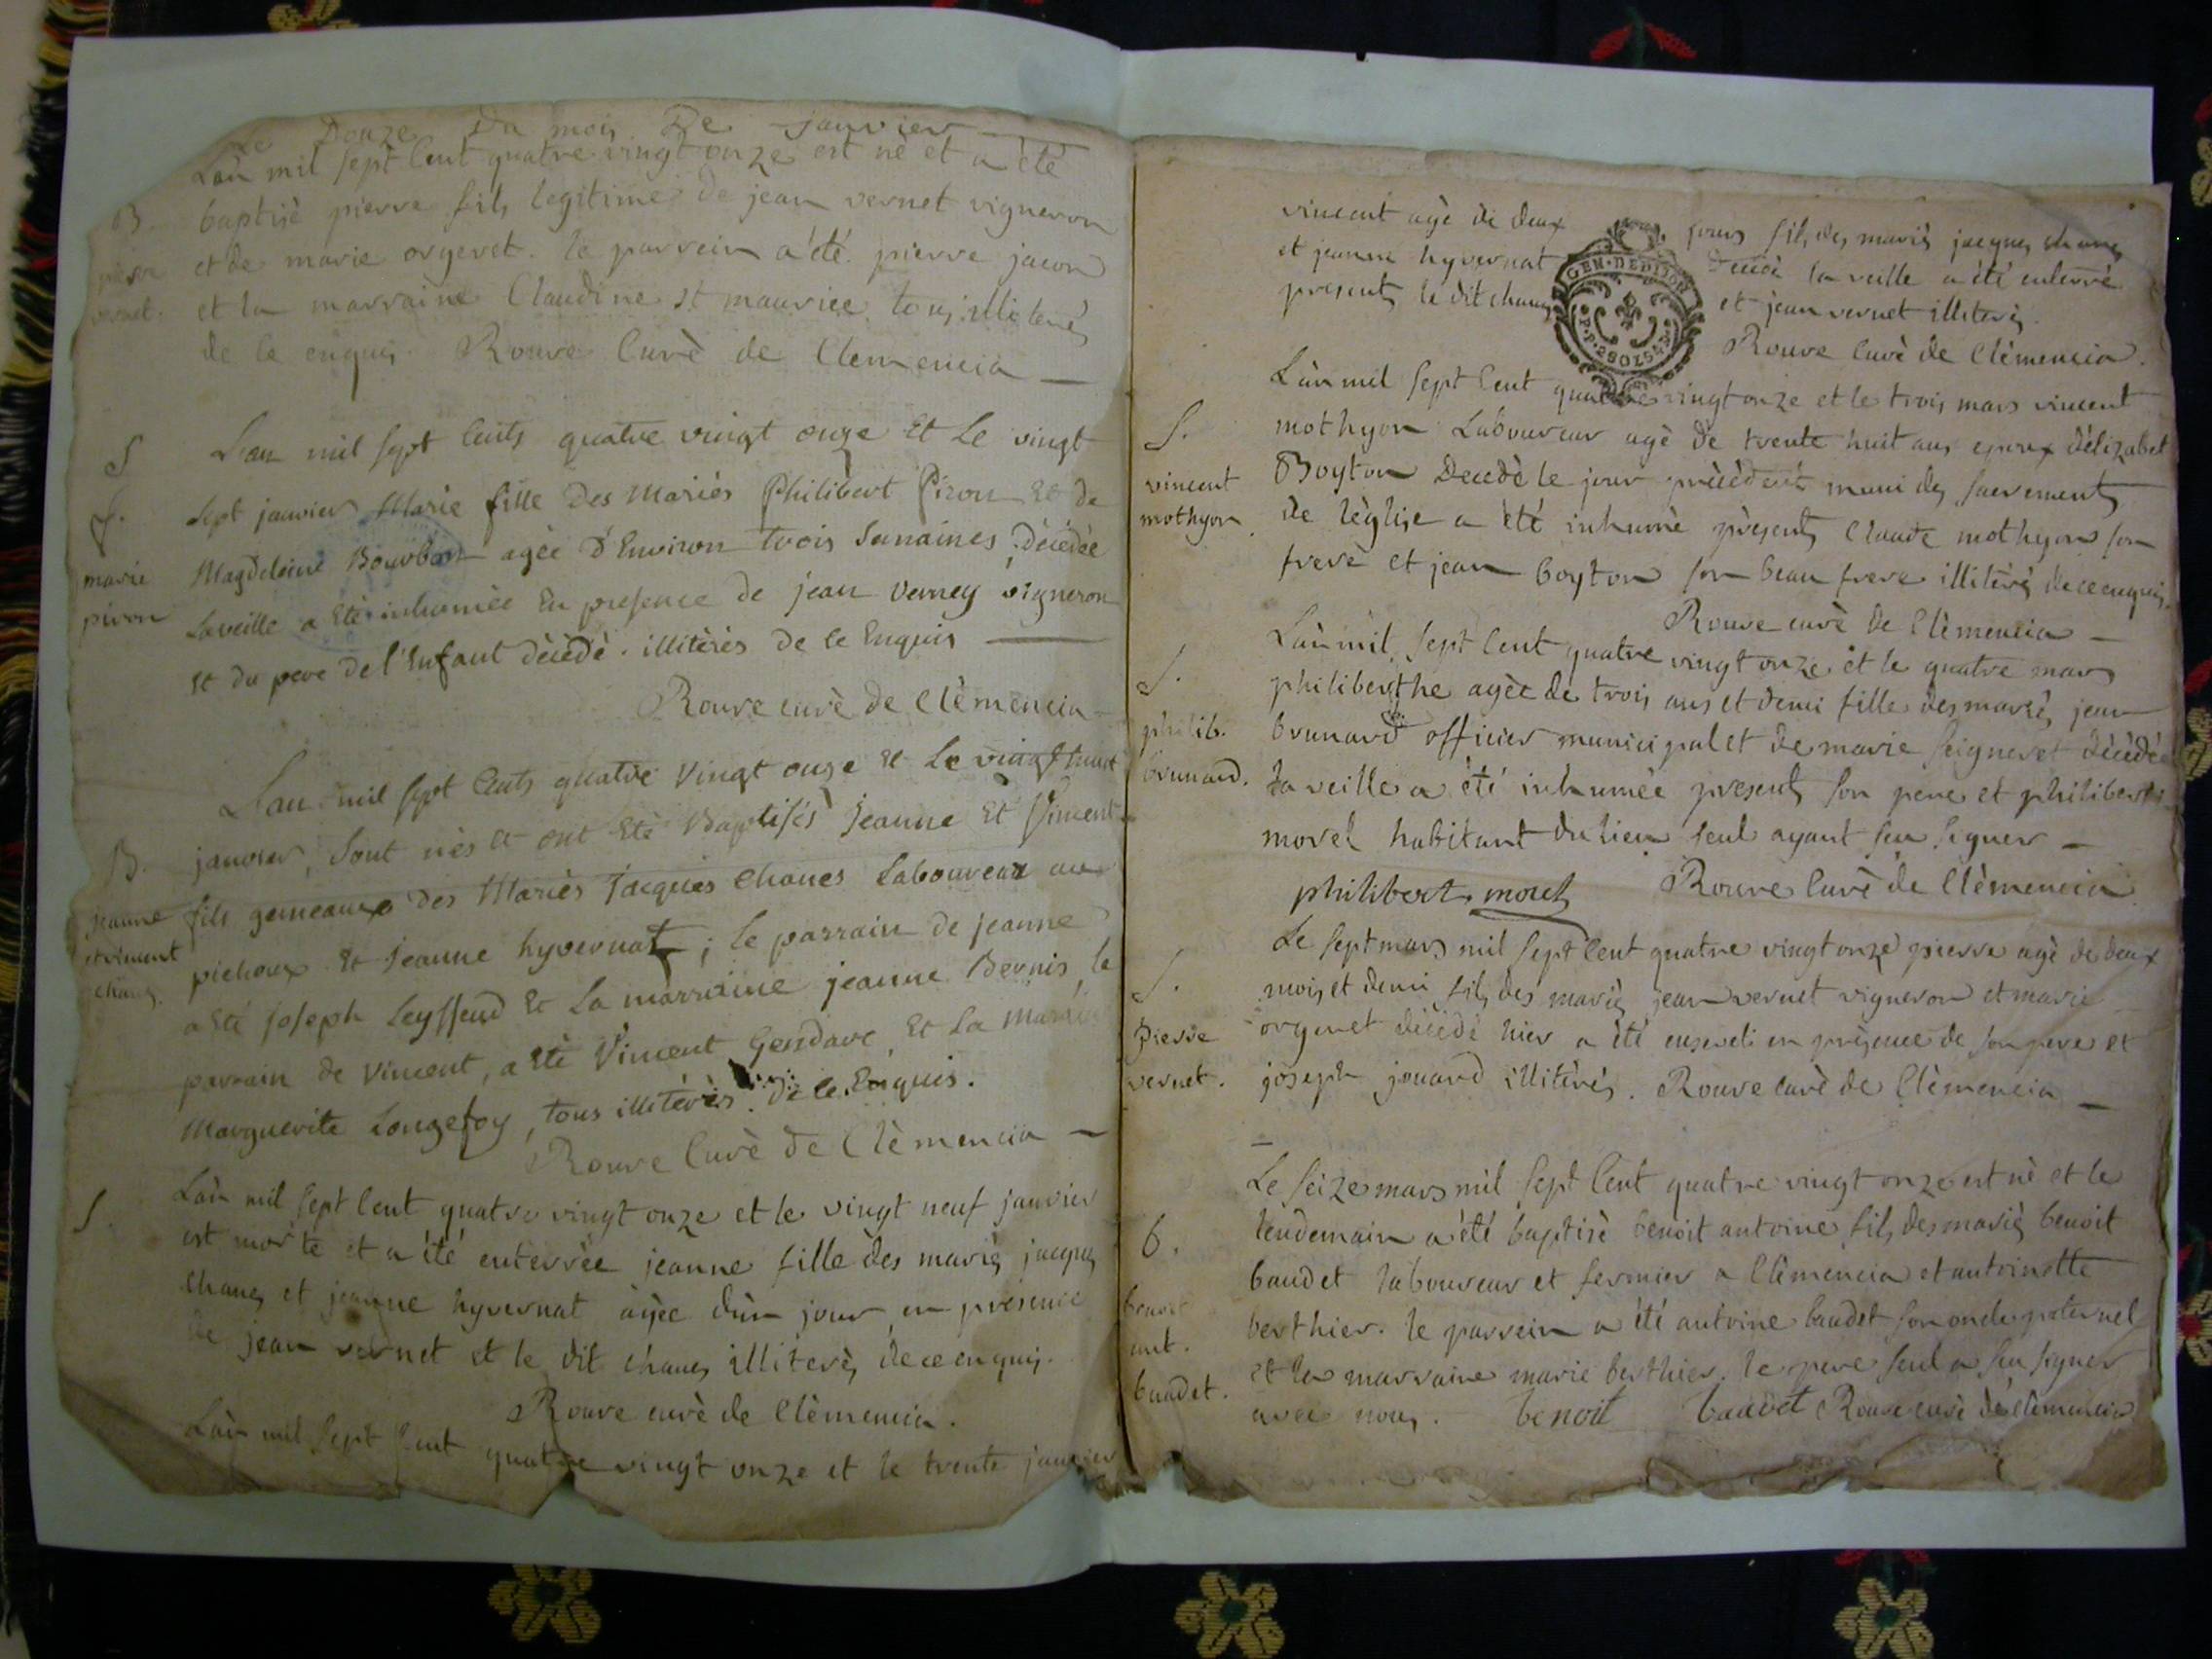 Le Douze Du mois De janvier
Lan mil sept Cent quatre vingt onze est né et a été
B. baptisé pierre fils legitime de jean vernet vigneron
pierre et de marie orgeret. le parrein a été pierre jacon
vernet. et la marraine Claudine st maurice tous illiterés
de ce enquis. Rouve Curé de Clemencia —
S Lan mil sept Cents quatre vingt onze Et Le vingt
f. Sept janvier Marie fille Des Mariés Philibert Piron Et de
marie Magdeleine Bourbon agée D'Environ trois Semaines, Décédée
piron La veille a Eté inhumée En presence de jean Verney vigneron
Et du pere de l'Enfant décédé. illitérés de ce Enquis —
Rouve curé de Clémencia —
Lan mil sept Cents quatre Vingt onze Et Le vingt huit
B. janvier, Sont nés Et ont Eté Baptisés Jeanne Et Vincent
jeanne fils gemeaux des Mariés Jacques Chanes Laboureur au
et vincent pichoux Et Jeanne hyvernat; le parrain de jeanne
chanes. a Eté joseph Leyssend Et La marraine jeanne Bernis, le
parrain de Vincent, a Eté Vincent Gendarc, Et La
Marguerite Longefoy, tous illitérés. De ce Enquis.
Rouve Curé de Clémencia —
S. Lan mil sept Cent quatre vingt onze et le vingt neuf janvier
est morte et a été enterrée jeanne fille des mariés jacques
Chanes et jeanne hyvernat agée d'un jour, en presence
de jean vernet et le dit chanes illiterés de ce enquis.
Rouve curé de Clémencia.
Lan mil sept Cent quatre vingt onze et le trente janvier
vincent agé de deux jours fils des mariés jacques chanes
et jeanne hyvernat décédé la veille a été enterré
presents le dit chanes et jean vernet illiterés.
GEN. DE DIJON
Rouve Curé de Clémencia.
Lan mil sept Cent quatre vingt onze et le trois mars vincent
S. mothyon Laboureur agé de trente huit ans epoux d'élizabet
vincent Boyton Decedé le jour précédent muni des sacrements
mothyon de l'église a été inhumé présents Claude mothyon son
frere et jean boyton son beau frere illitérés de ce enquis.
Rouve curé de Clémencia —
Lan mil sept Cent quatre vingt onze et le quatre mars
S. philiberthe agée de trois ans et demi fille des mariés jean
philib. brunard officier municipal et de marie seigneret décédée
brunard. la veille a été inhumée presents son pere et philibert
morel habitant du lieu seul ayant seu signer —
philibert morel Rouve Curé de Clémencia
Le sept mars mil sept Cent quatre vingt onze pierre agé de deux
S. mois et demi fils des mariés jean vernet vigneron et marie
pierre orgeret décédé hier a été enseveli en présence de son pere et
vernet. joseph jouard illitérés. Rouve curé de Clémencia —
Le seize mars mil sept Cent quatre vingt onze est né et le
b. lendemain a été baptisé benoit antoine fils des mariés benoit
baudet laboureur et fermier a Clémencia et antoinette
benoit berthier. le parrein a été antoine baudet son oncle paternel
ant. et la marraine marie berthier. le pere seul a seu signer
baudet. avec nous. benoit baudet Rouve curé de clémencia